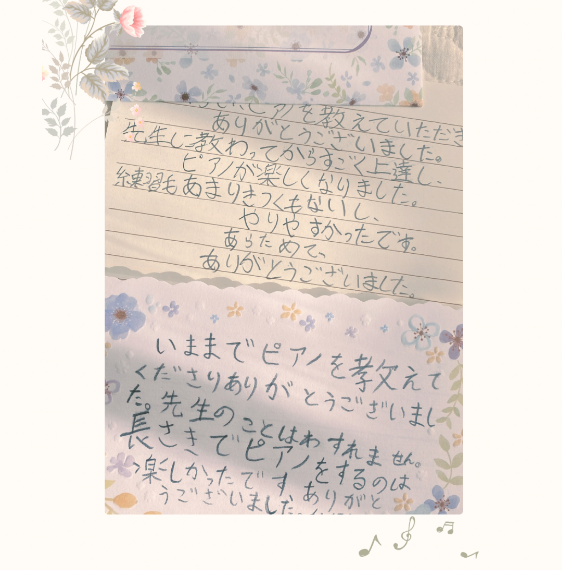 ピアノを教えていただき
ありがとうございました。
先生に教わってからすごく上達し、
ピアノが楽しくなりました。
練習もあまりきつくもないし、
やりやすかったです。
あらためて、
ありがとうございました。
いままでピアノを教えて
くださりありがとうございまし
た。先生のことはわすれません。
長さきでピアノをするのは
楽しかったです。ありがと
うございました